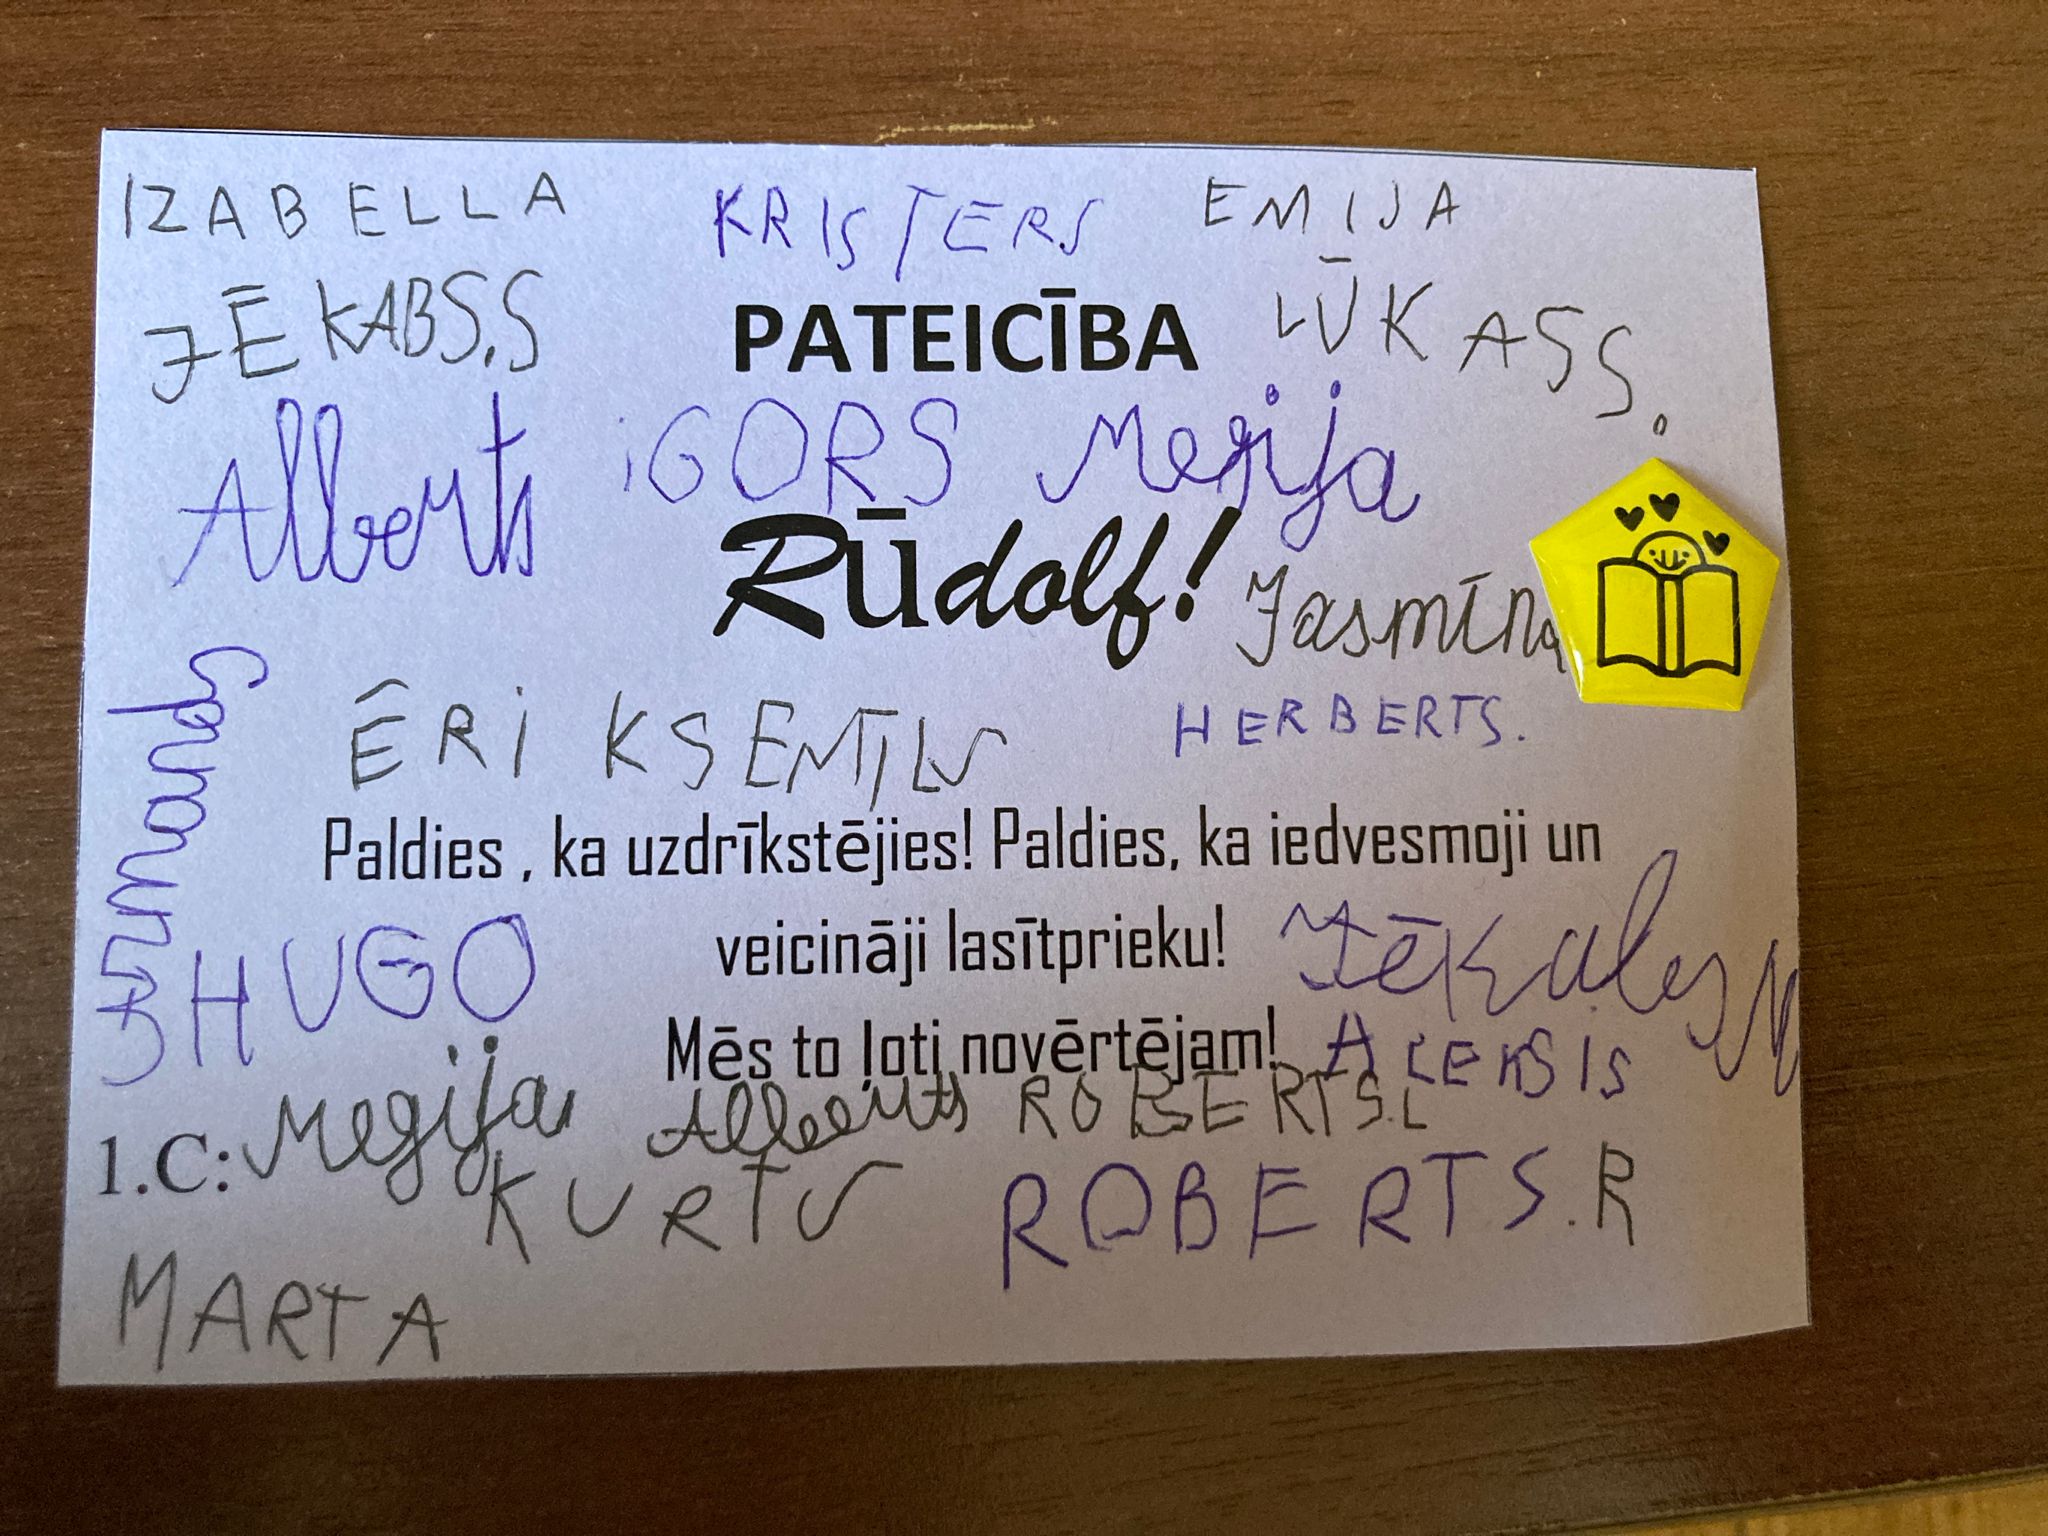 IZABELLA KRISTERS EMIJA
JĒKABS.S PATEICĪBA LŪKASS.
Alberts iGORS Megija
Rūdolf! Jasmīna
ĒRiKS EMĪLS HERBERTS.
Paldies , ka uzdrīkstējies! Paldies, ka iedvesmoji un
veicināji lasītprieku!
HUGO
Mēs to ļoti novērtējam! ALEKSIS
1.C: Megija Alberts ROBERTS.L
KURTS ROBERTS.R
MARTA